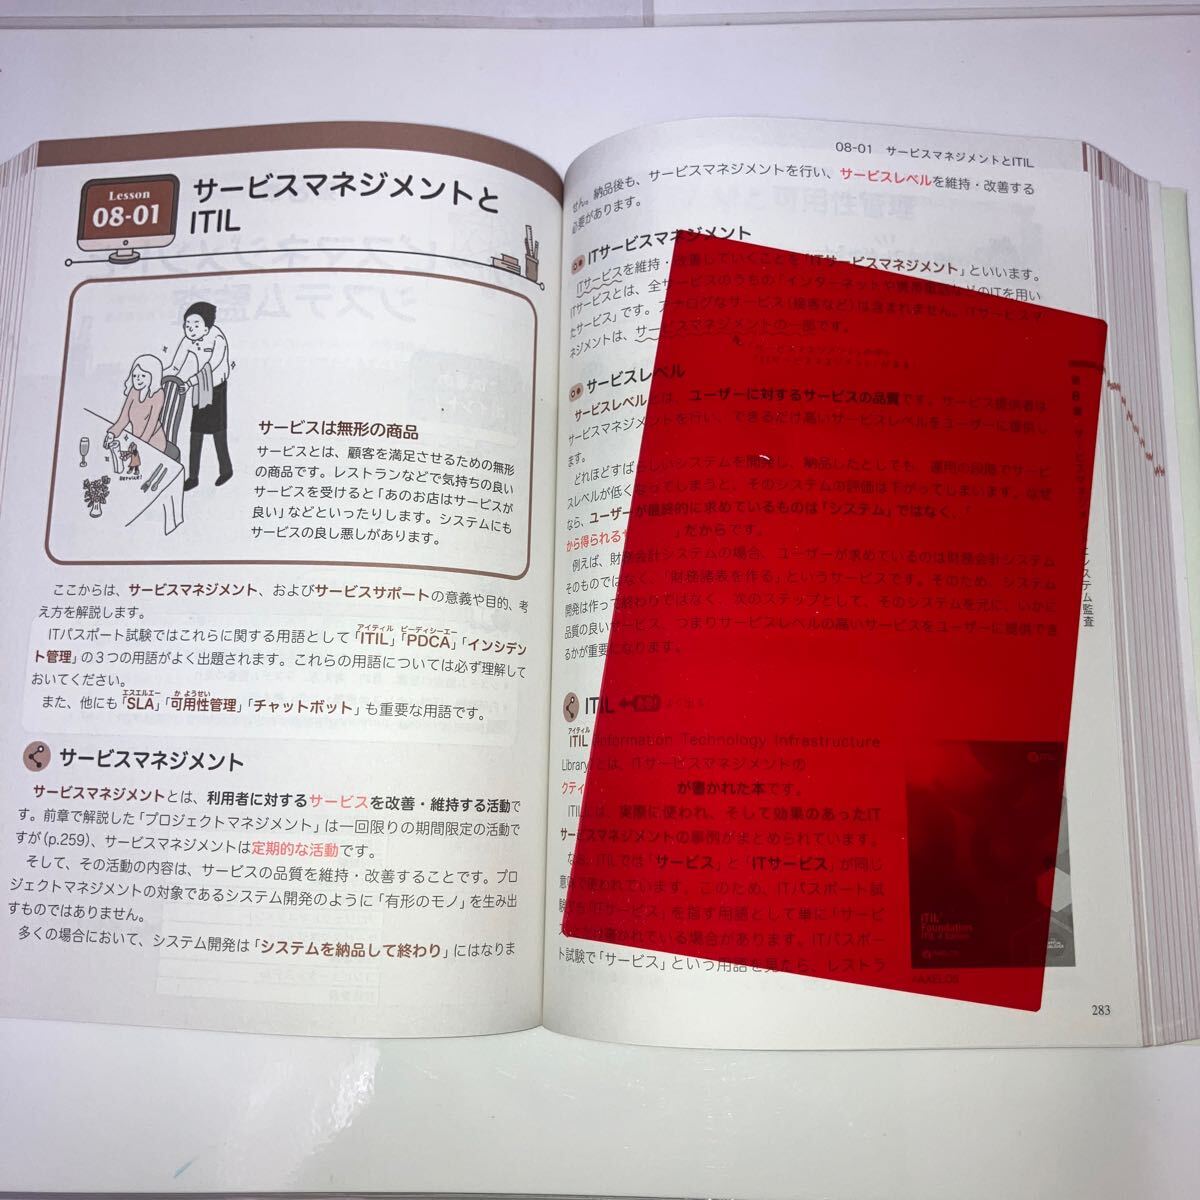 Lesson
08-01
サービスマネジメントと
ITIL
サービスは無形の商品
サービスとは、顧客を満足させるための無形
の商品です。レストランなどで気持ちの良い
サービスを受けると「あのお店はサービスが
良い」などといったりします。システムにも
サービスの良し悪しがあります。
ここからは、サービスマネジメント、およびサービスサポートの意義や目的、考
え方を解説します。
アイティル ピーディシーエー
ITパスポート試験ではこれらに関する用語として「ITIL」「PDCA」「インシデン
ト管理」の3つの用語がよく出題されます。これらの用語については必ず理解して
おいてください。
エスエルエー かようせい
また、他にも「SLA」「可用性管理」「チャットボット」も重要な用語です。
サービスマネジメント
サービスマネジメントとは、利用者に対するサービスを改善・維持する活動で
す。前章で解説した「プロジェクトマネジメント」は一回限りの期間限定の活動で
すが(p.259)、サービスマネジメントは定期的な活動です。
そして、その活動の内容は、サービスの品質を維持・改善することです。プロ
ジェクトマネジメントの対象であるシステム開発のように「有形のモノ」を生み出
すものではありません。
多くの場合において、システム開発は「システムを納品して終わり」にはなりま
08-01 サービスマネジメントとITIL
せん。納品後も、サービスマネジメントを行い、サービスレベルを維持・改善する
必要があります。
ITサービスマネジメント
ITサービスを維持・改善していくことを「ITサービスマネジメント」といいます。
ITサービスとは、全サービスのうちの「インターネットや携帯電話などのITを用い
たサービス」です。アナログなサービス(接客など)は含まれません。ITサービスマ
ネジメントは、サービスマネジメントの一部です。
サービスレベル
サービスレベルとは、ユーザーに対するサービスの品質です。サービス提供者は
サービスマネジメントを行い、できるだけ高いサービスレベルをユーザーに提供し
ます。
どれほどすばらしいシステムを開発し、納品したとしても、運用の段階でサービ
スレベルが低くなってしまうと、そのシステムの評価は下がってしまいます。なぜ
なら、ユーザーが最終的に求めているものは「システム」ではなく、「
から得られる」だからです。
例えば、財務会計システムの場合、ユーザーが求めているのは財務会計システム
そのものではなく、「財務諸表を作る」というサービスです。そのため、システム
開発は作って終わりではなく、次のステップとして、そのシステムを元に、いかに
品質の良いサービス、つまりサービスレベルの高いサービスをユーザーに提供でき
るかが重要になります。
ITIL よく出る
アイティル
ITIL Information Technology Infrastructure
Library)とは、ITサービスマネジメントの
クティ が書かれた本です。
ITILは、実際に使われ、そして効果のあったIT
サービスマネジメントの事例がまとめられています。
なお、ITILでは「サービス」と「ITサービス」が同じ
意味で使われています。このため、ITパスポート試
験でも「ITサービス」を指す用語として単に「サービ
ス」とだけ書かれている場合があります。ITパスポー
ト試験で「サービス」という用語を見たら、レストラ
ITIL
Foundation
ITIL 4 Edition
AXELOS
283